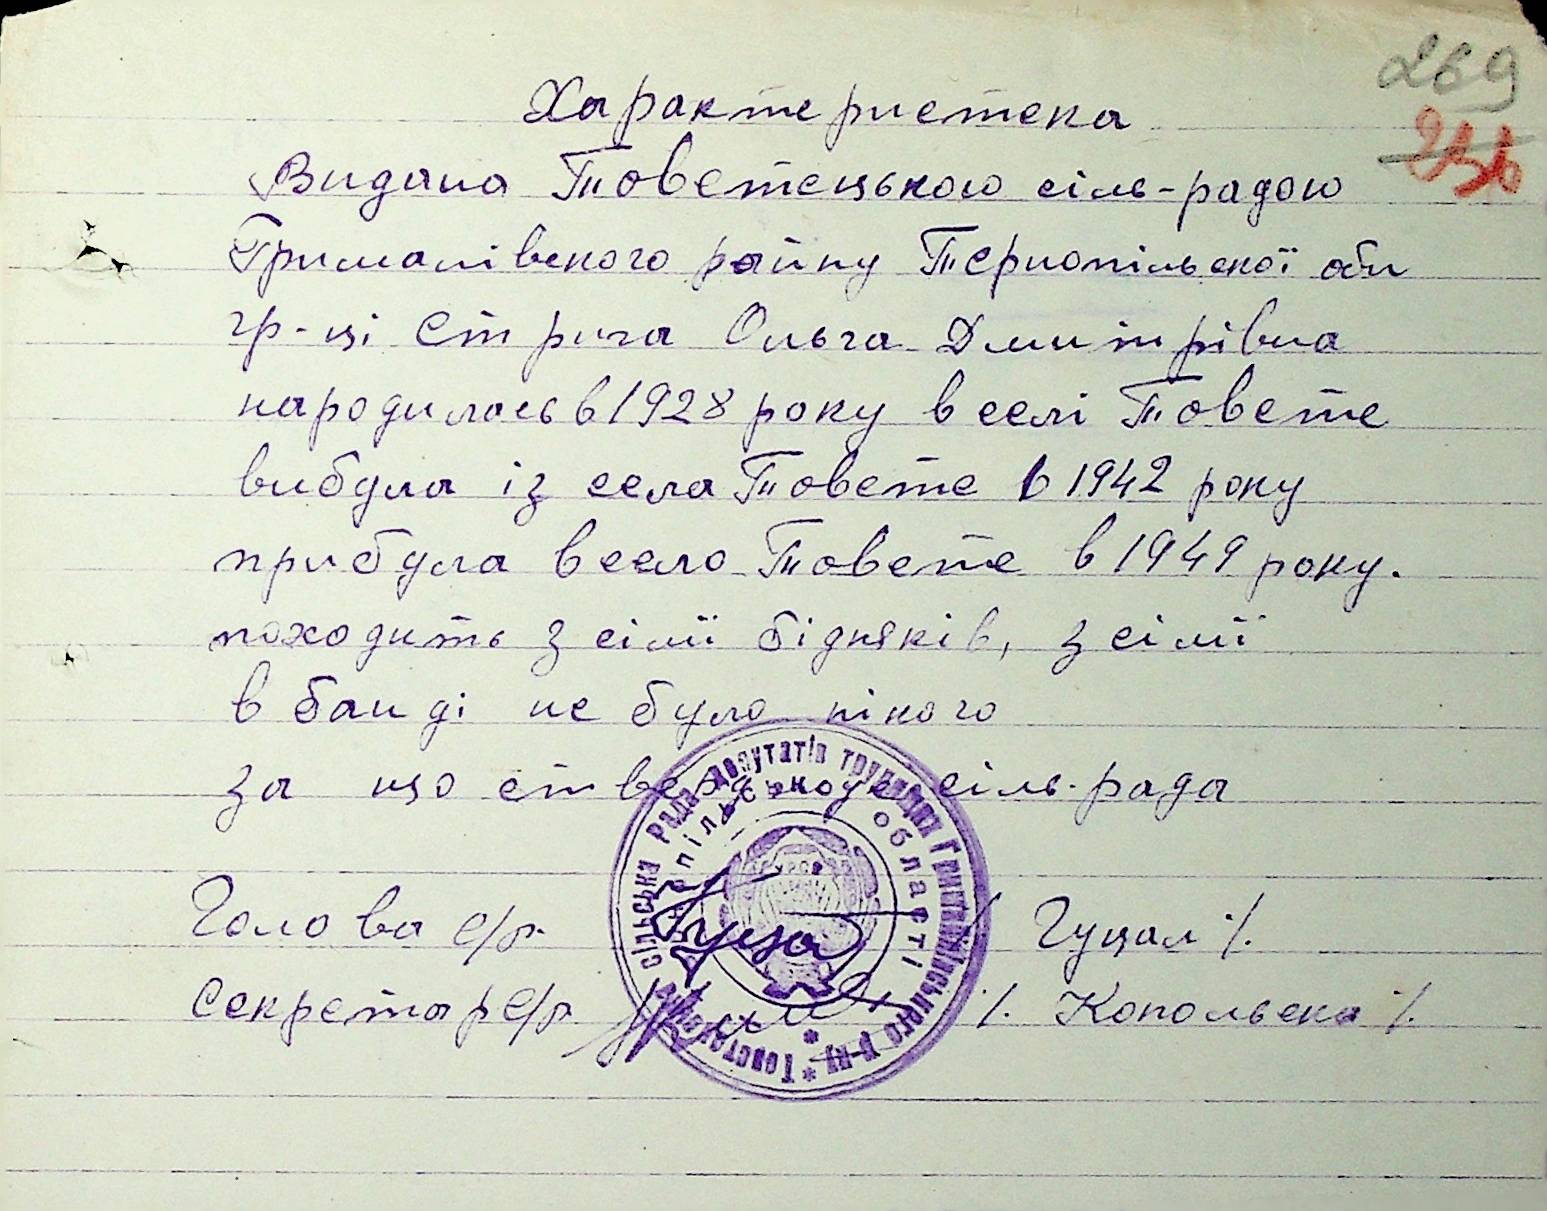 269
Характеристека
Видана Товстецькою сіль-радою
Грималівского райну Тернопільскої обл
гр-ці Стрига Ольга Дмитрівна
народилась в 1928 року в селі Товсте
вибула із села Товсте в 1942 року
прибула в село Товсте в 1949 року.
походить з сімї бідняків, з сімї
в банді не було нікого
за що стверджує сіль-рада
Голова с/р. /. Гуцал /.
Секретар с/р /. Копольска /.
сільська Рада депутатів трудящих Грималівського р-ну * Товстен
області
УРСР